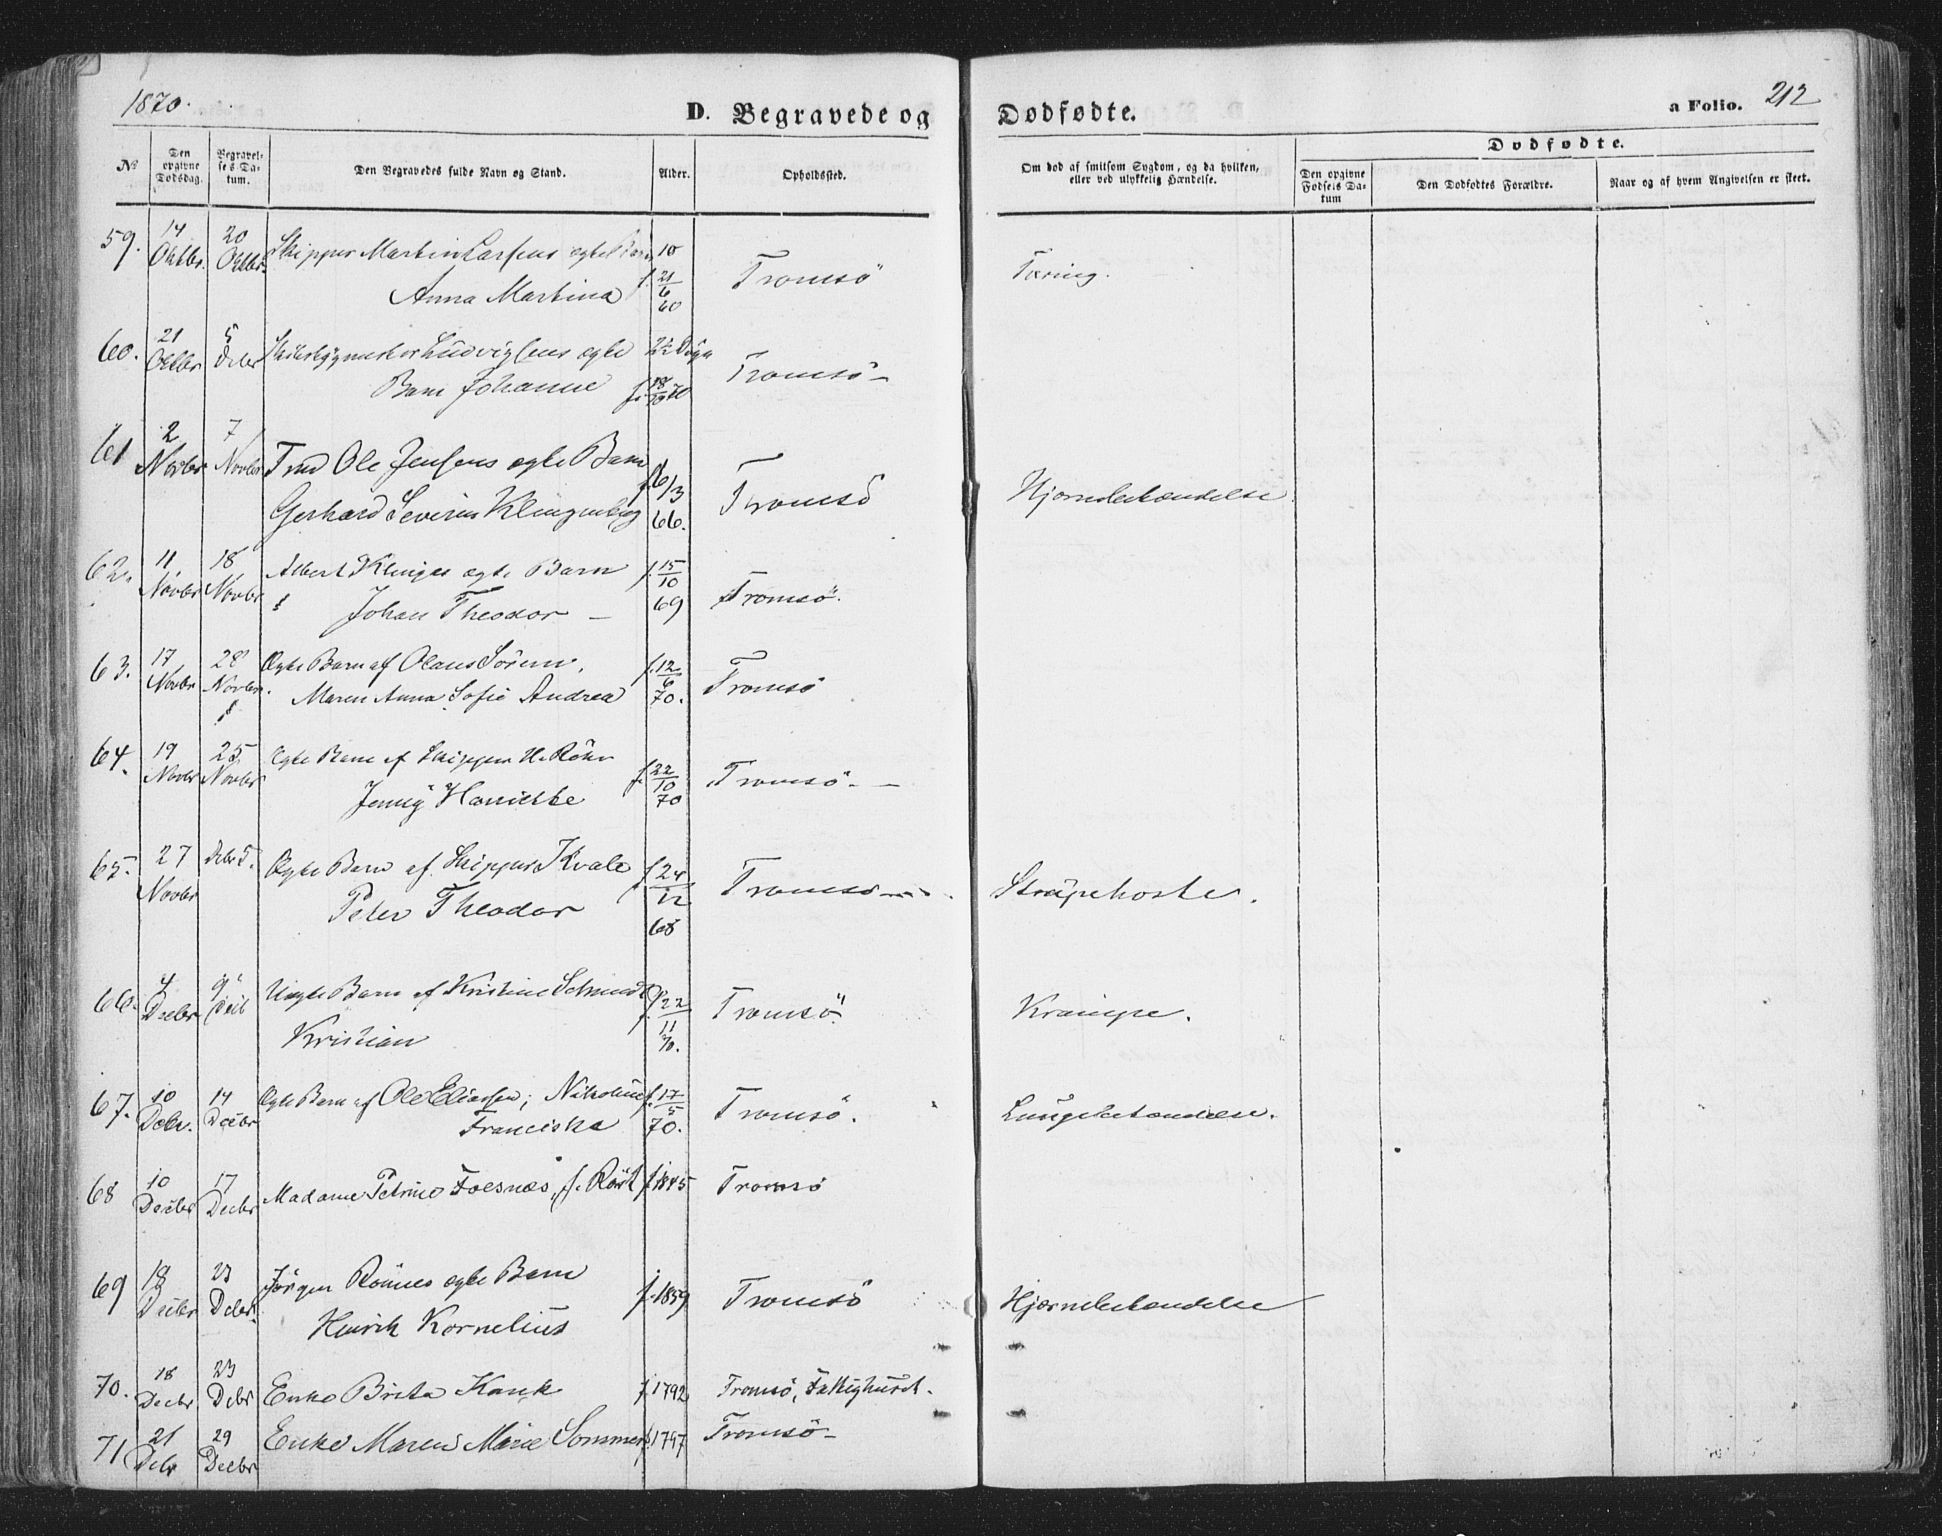 1870.
D. Begravede og Dødfødte.
a Folio. 212
No
Den opgivne Dødsdag.
Begravelses Datum.
Den Begravedes fulde Navn og Stand.
Alder.
Opholdssted.
Om død af smitsom Sygdom, og da hvilken, eller ved ulykkelig Hændelse.
Dødfødte.
Den opgivne Fødsels Datum
Den Dødfødtes Forældre.
Naar og af hvem Angivelsen er skeet.
59. 14 Oktbr. 20 Oktbr. Skipper Martin Larsens ægte Barn 10
Anna Martina f. 21/6 60 Tromsö Tæring.
60. 21 Oktbr 5 Dcbr Ludvigsens ægte 2 1/2 Døgn
Barn Johanne f. 18/10 70 Tromsö
61 2 Novbr 7 Novbr Ole Jensens ægte Barn
Gerhard Severin Klingenberg f. 6/3 66. Tromsö Hjernebetændelse
62. 11 Novbr 18 Novbr Albert Klinges ægte Barn
Johan Theodor – f. 15/10 69 Tromsö.
63. 17 Novbr 28 Novbr. Ægte Barn af Olaus Sörens.
Maren Anna Sofie Andrea f. 12/6 70. Tromsö
64. 19 Novbr 25 Novbr Ægte Barn af Skipper H. Röhr
Jenny f. 22/10 70 Tromsö. –
65. 27 Novbr Debr 5. Ægte Barn af Skipper Kvale
Peter Theodor f. 24/12 68 Tromsö Strupehoste.
66. 4 Decbr 9 Decb Uægte Barn af Kristine Schmidt
Kristian f. 22/11 70. Tromsö Krampe.
67. 10 Decbr. 14 Decbr Ægte Barn af Ole Eliassen; Nikoline
Franciska f. 17/5 70. Tromsö. Lungebetændelse.
68 10 Decbr 17 Decbr Madame Petrine Foesnæs, f. f. 1845 Tromsö
69 18 Decbr 23 Debr. Jörgen ægte Barn
Henrik Kornelius f. 1859 Tromsö Hjernebetændelse
70. 18 Decbr 23 Debr Enke Brita f. 1792 Tromsö, Fattighuset.
71 21 Debr 29 Decbr Enke Maren Marie Sommer Tromsö –